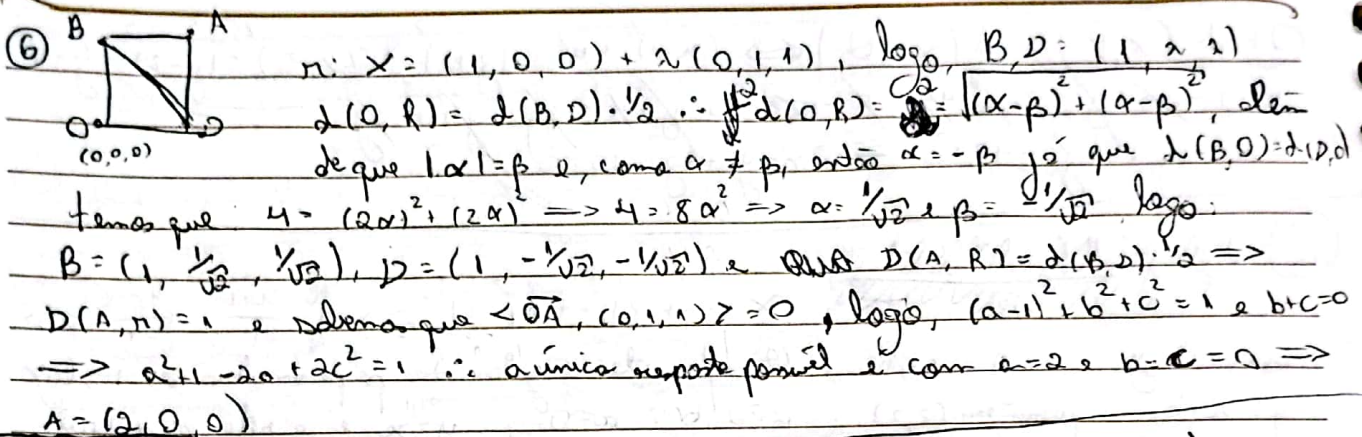 ⑥ B A
r: X = (1,0,0) + λ(0,1,1), logo, B,D = (1,λ,λ)
d(O,R) = d(B,D)·1/2 ∴ 2d(O,R) = 2 = √((α-β)² + (α-β)²), além
O D
(0,0,0)
de que |α|=β e, como α ≠ β, então α = -β já que d(B,O)=d(D,O)
temos que 4 = (2α)² + (2α)² => 4 = 8α² => α = 1/√2 e β = -1/√2 logo:
B = (1, 1/√2, 1/√2), D = (1, -1/√2, -1/√2) e D(A,R) = d(B,D)·1/2 =>
D(A,r) = 1 e sabemos que <OA, (0,1,1)> = 0, logo, (a-1)² + b² + c² = 1 e b+c=0
=> a²+1-2a+2c² = 1 ∴ a única resposta possível é com a=2 e b=c=0 =>
A = (2,0,0)